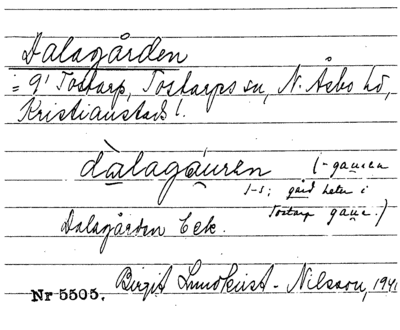 Dalagården
= 9' Tostarp, Tostarps sn, N. Åsbo hd,
Kristianstads l.
dàlagáuren (-gauren
1-s; gård heter i
Tostarp gaur.)
Dalagården Eek.
Birgit Lundkvist-Nilsson, 1941
Nr 5505.